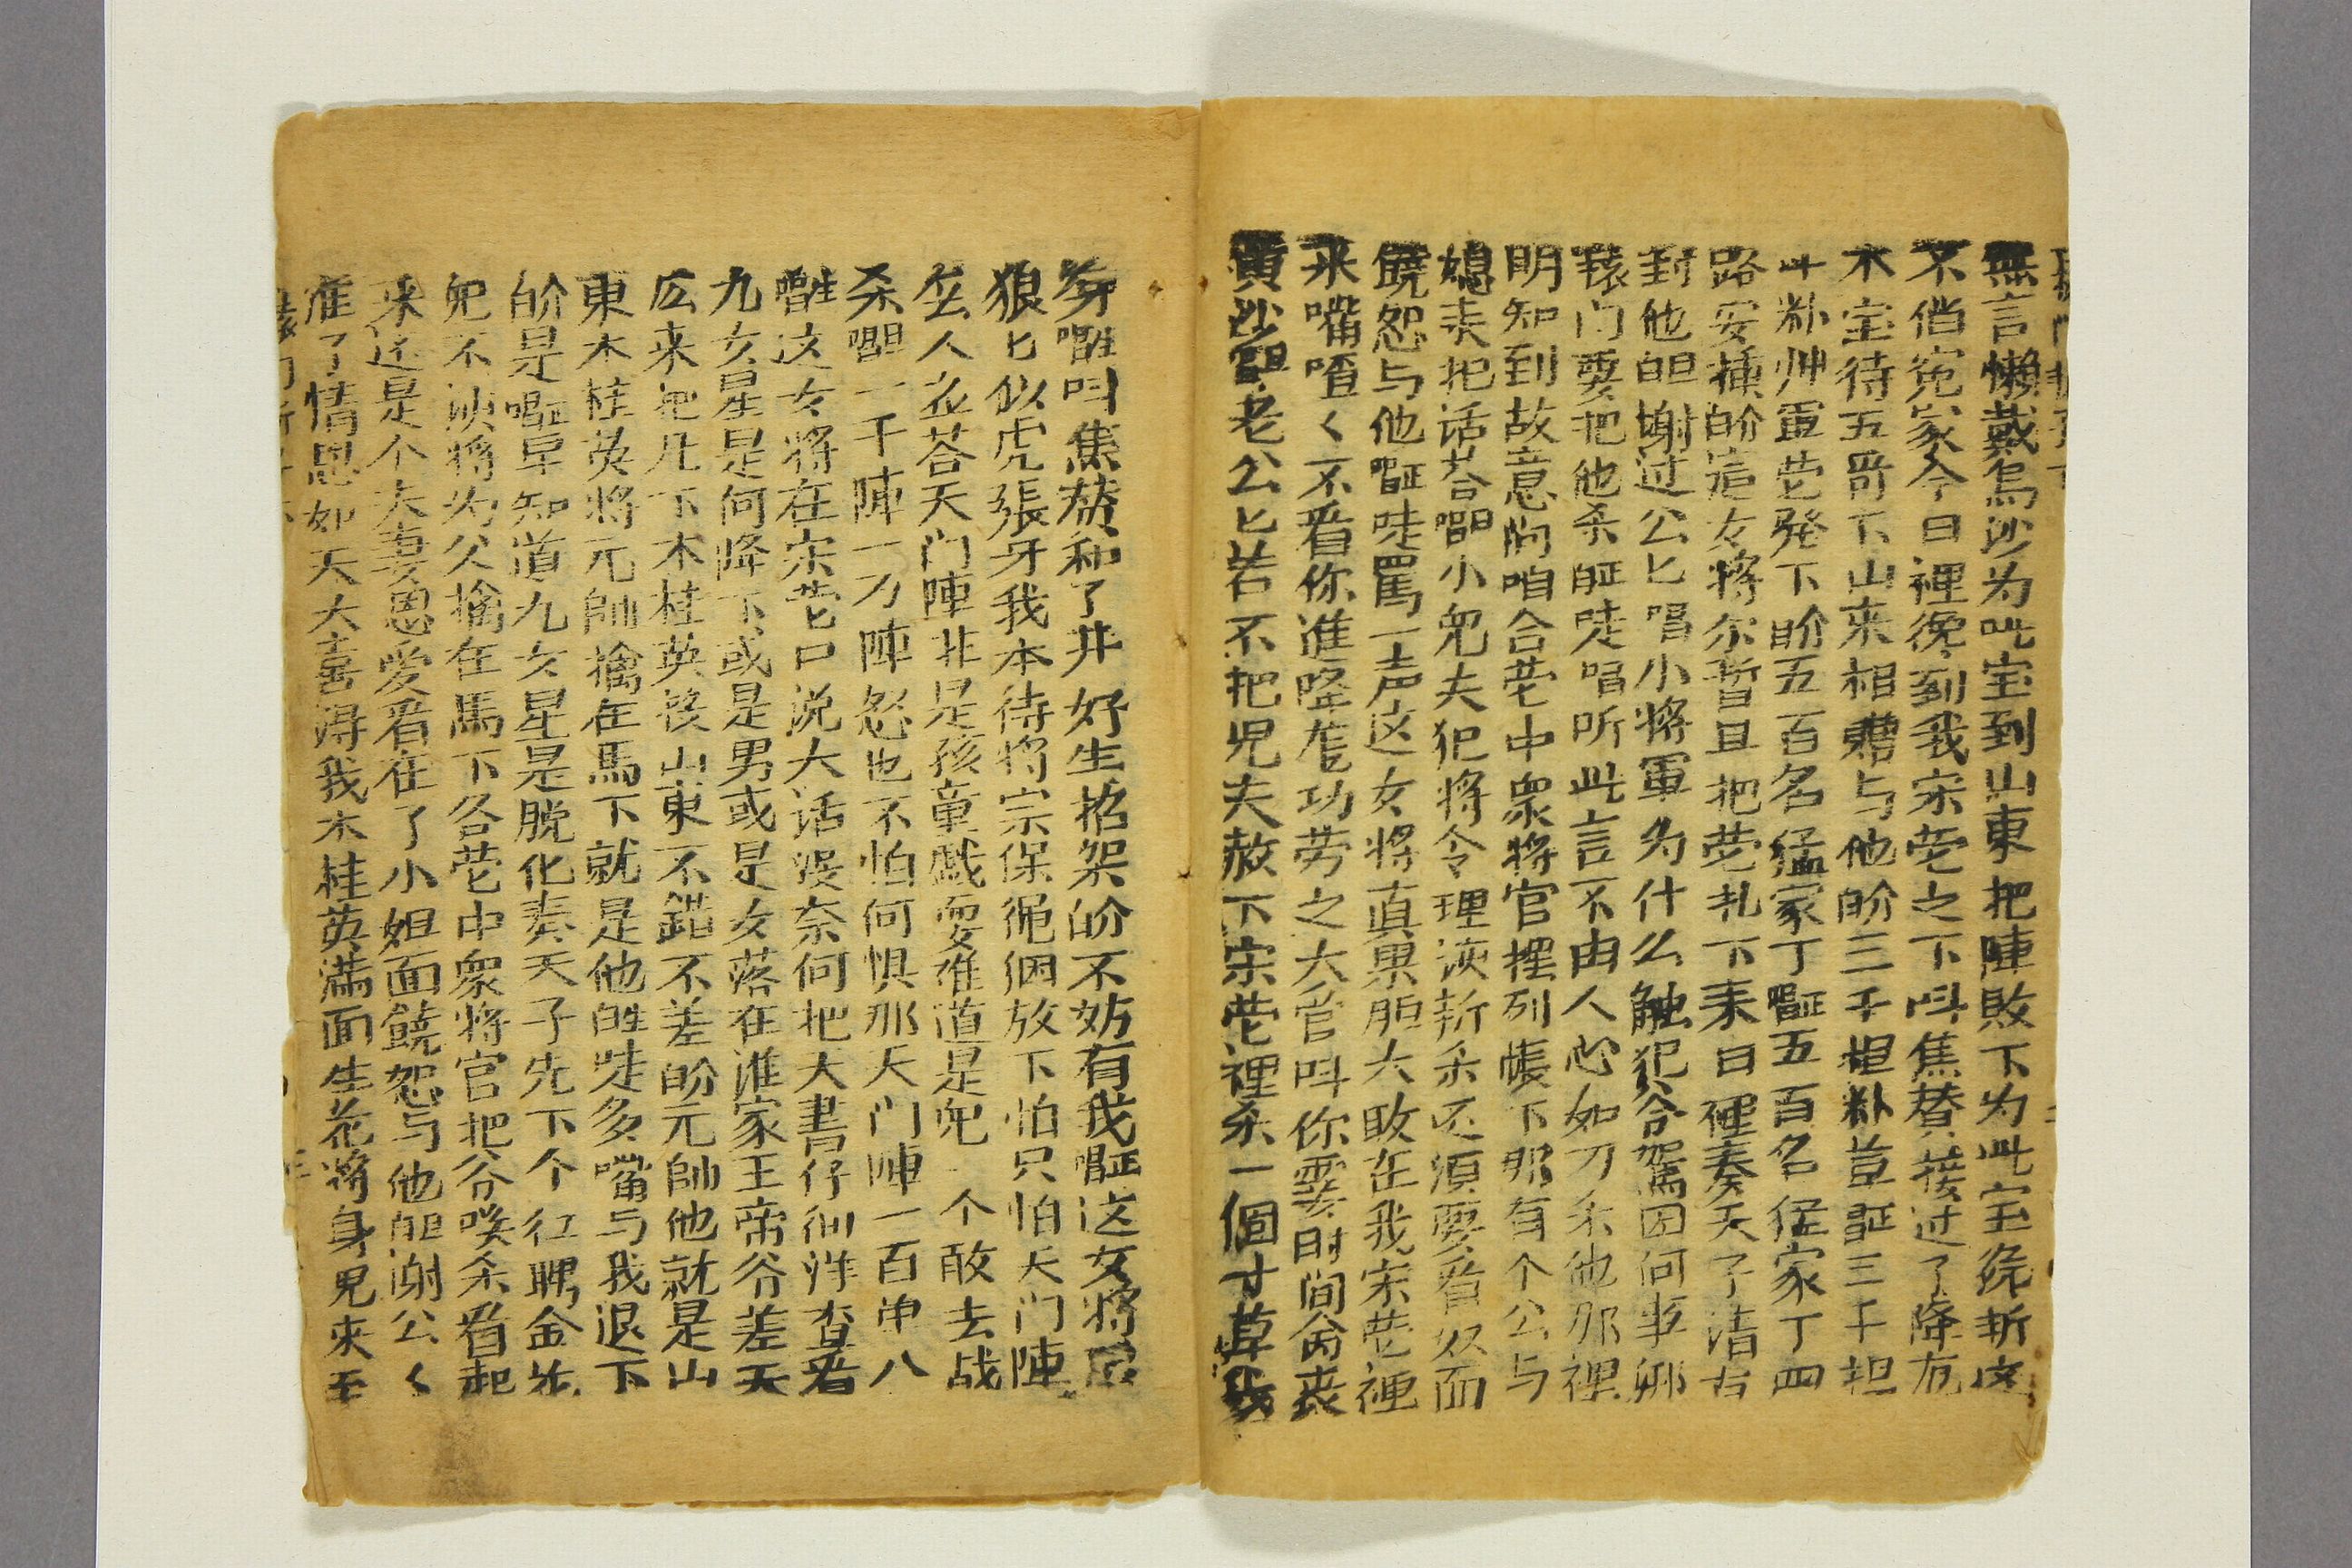 無言懶戴烏沙为此宝到山東把陣敗下为此宝
不俏冤家今日裡後到我宋营之下叫焦賛接过了降
木宝待五哥下山来相贈与他的三千担粆豈𠵽三千担
此粆卅軍营発下的五百名猛家丁𠵽五百名侄家丁四
路安揷的這女将尔暂且把营扎下来日裡奏天子清
封他 謝过公匕唱小将軍为什么触犯令駕因何事
轅门要把他杀 唗唱听此言不由人心如刀杀他那裡
明知到故意问咱合营中衆将官摆列帳下那有个公与
媳夫把话荅唱小兒夫犯将令理该斩杀还須要看奴面
饒恕与他 唗罵一声这女将真果胆大敢在我宋营裡
来嘴喳く不看你准降 功劳之大营叫你要时间命丧
黄沙 老公匕若不把児夫赦下宋营裡杀一個寸草
叫焦賛和了井好生招架的不妨有我 这女将
狼匕似虎張牙我本待将宗保 绑放下怕只怕天门陣
么人 荅天门陣非是孩童戱耍难道是兒一个敢去战
杀 一千陣一万陣怒也不怕何惧那天门陣一百单八
 这女将在宋营匕口说大话没奈何把大書仔细详查看
九女星是何降下或是男或是女落在谁家王帝爷差天
 来把凡下木桂英 山東不錯不差的元帥他就是山
東木桂英将元帥擒在馬下就是他 唗多嘴与我退下
的是 早知道九女星是脱化奏天子先下个红聘金
兒不该将为父擒在馬下各营中衆将官把爷唉杀看起
来还是个夫妻恩愛看在了小姐面饒恕与他 謝公く
准了情恩如天大喜淂我木桂英满面生花将身兒来至